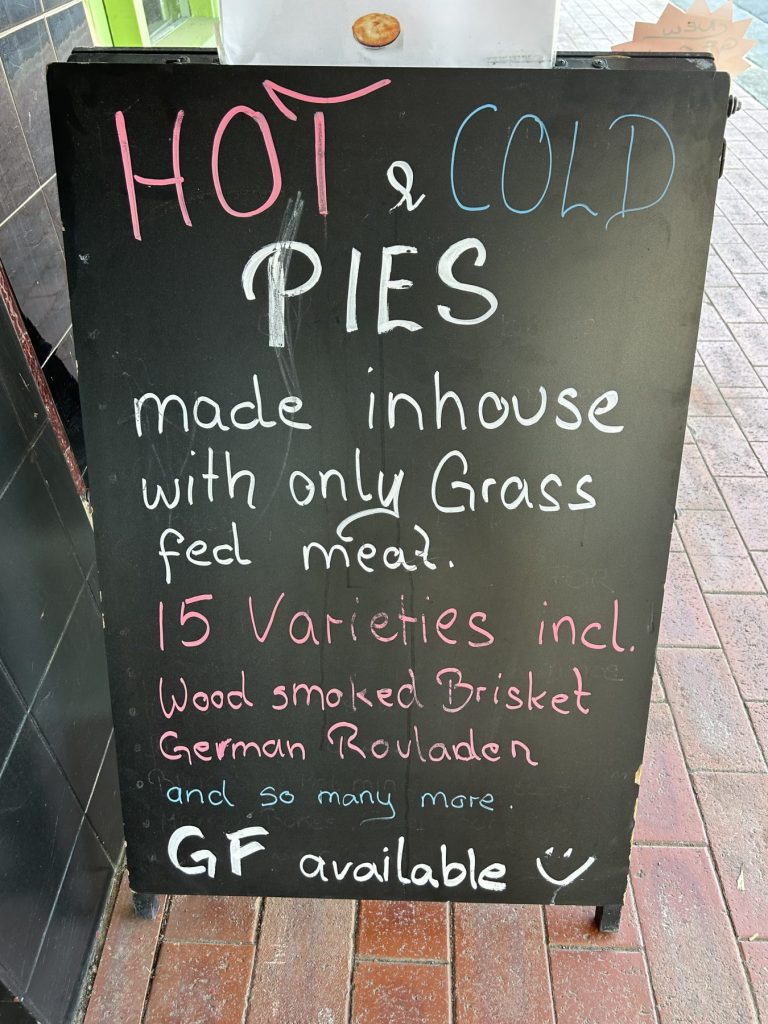 HOT & COLD
PIES
made inhouse
with only Grass
fed meat.
15 Varieties incl.
Wood smoked Brisket
German Rouladen
and so many more.
GF available